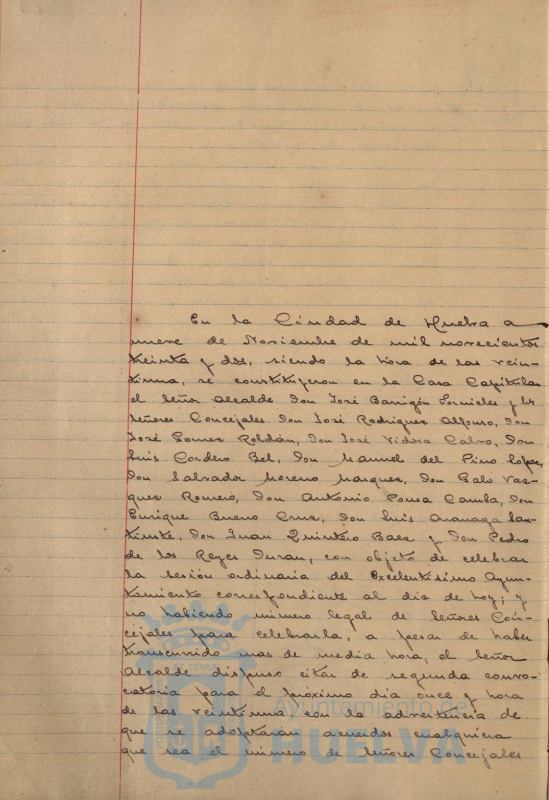 En la Ciudad de Huelva a
nueve de Noviembre de mil novecientos
treinta y dos, siendo la hora de las vein-
tiuna, se constituyeron en la Casa Capitular
el Señor Alcalde Don José Barrigón Fornieles y los
Señores Concejales Don José Rodriguez Alfonso, Don
José Gomez Roldán, Don José Vidosa Calvo, Don
Luis Cordero Bel, Don Manuel del Pino Lopez,
Don Salvador Moreno Marquez, Don Galo Vaz-
quez Romero, Don Antonio Pousa Camba, Don
Enrique Bueno Cruz, Don Luis San-
, Don Juan Quintero Baez y Don Pedro
de los Reyes Duran, con objeto de celebrar
la sesión ordinaria del Excelentísimo Ayun-
tamiento correspondiente al dia de hoy; y
no habiendo número legal de Señores Con-
cejales para celebrarla, a pesar de haber
transcurrido mas de media hora, el Señor
Alcalde dispuso citar de segunda convo-
catoria para el próximo dia once y hora
de las veintiuna con la advertencia de
que se adoptarán acuerdos cualquiera
que sea el número de Señores Concejales
Ayuntamiento de
HUELVA